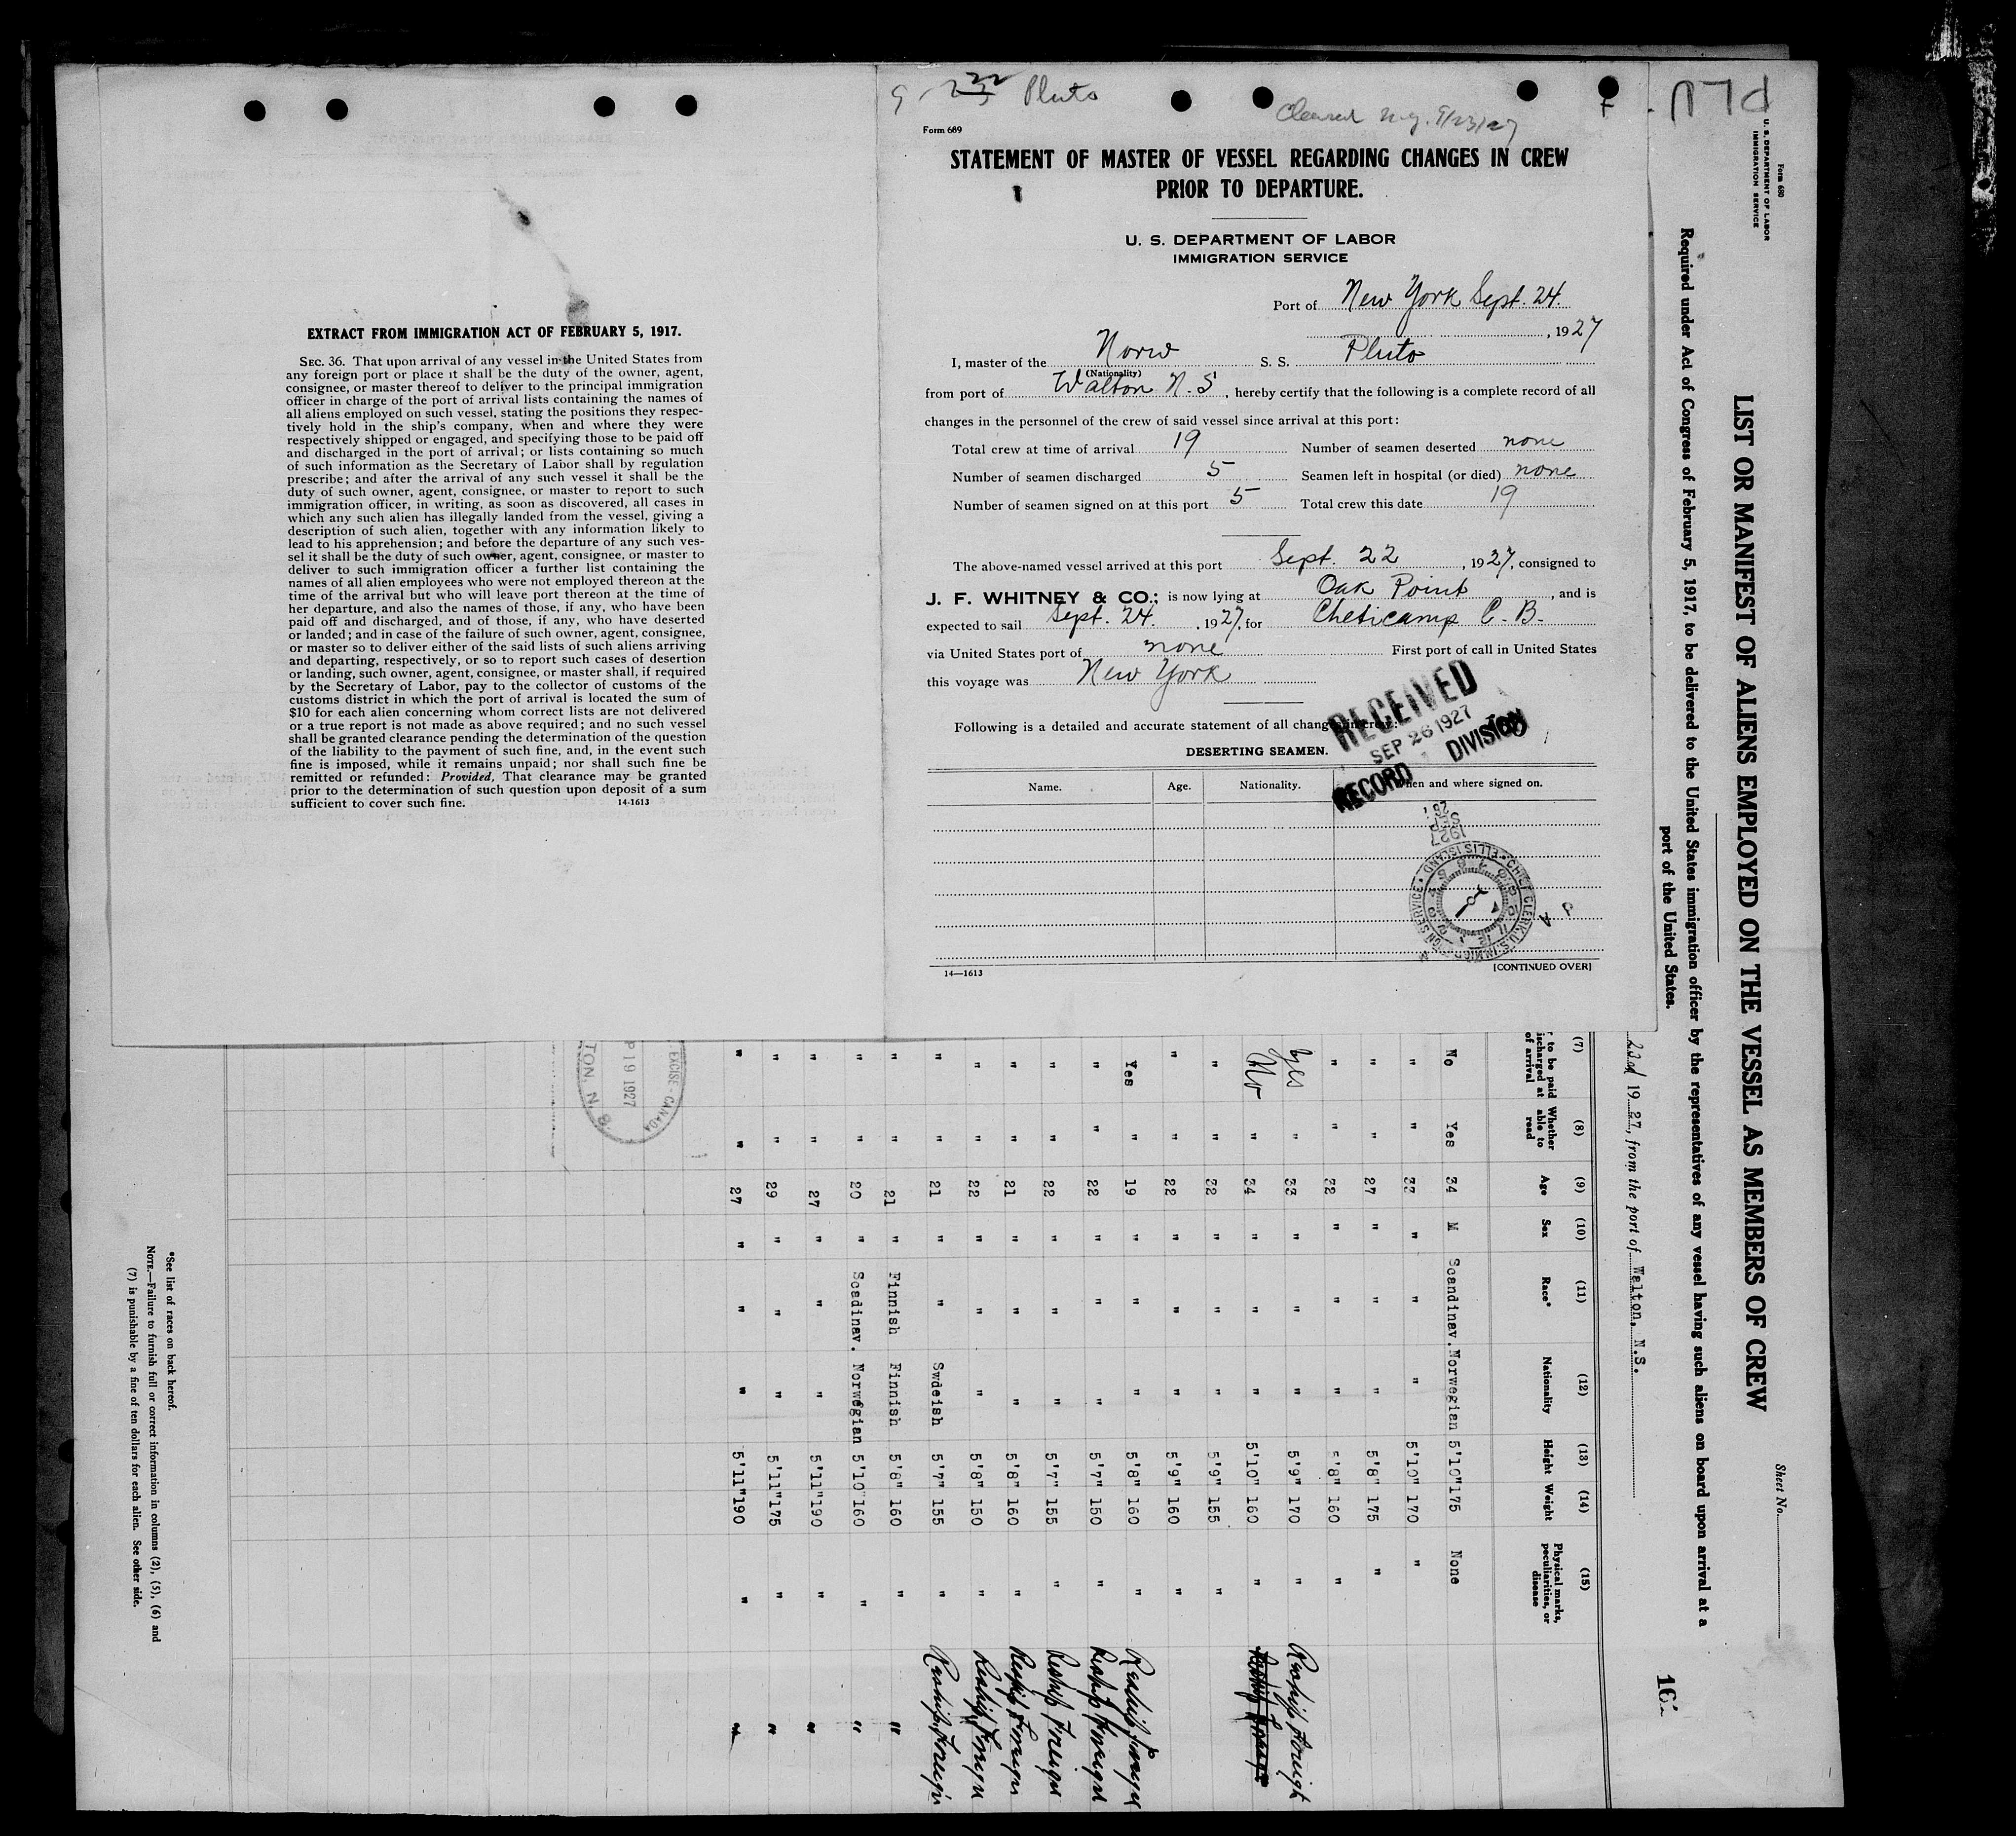 Pluto
Cleared N.Y. 9/23/27
Form 689
STATEMENT OF MASTER OF VESSEL REGARDING CHANGES IN CREW
PRIOR TO DEPARTURE.
U. S. DEPARTMENT OF LABOR
IMMIGRATION SERVICE
Port of New York Sept. 24.
, 1927
I, master of the Norw S. S. Pluto
(Nationality)
from port of Walton N. S , hereby certify that the following is a complete record of all
changes in the personnel of the crew of said vessel since arrival at this port:
Total crew at time of arrival 19 Number of seamen deserted none
Number of seamen discharged 5 Seamen left in hospital (or died) none
Number of seamen signed on at this port 5 Total crew this date 19
The above-named vessel arrived at this port Sept. 22 , 1927, consigned to
J. F. WHITNEY & CO.; is now lying at Oak Point , and is
expected to sail Sept. 24. , 1927, for Cheticamp C. B.
via United States port of none First port of call in United States
this voyage was New York
Following is a detailed and accurate statement of all changes in crew:
RECEIVED
SEP 26 1927
RECORD DIVISION
DESERTING SEAMEN.
Name. Age. Nationality. When and where signed on.
14—1613 [CONTINUED OVER]
EXTRACT FROM IMMIGRATION ACT OF FEBRUARY 5, 1917.
SEC. 36. That upon arrival of any vessel in the United States from
any foreign port or place it shall be the duty of the owner, agent,
consignee, or master thereof to deliver to the principal immigration
officer in charge of the port of arrival lists containing the names of
all aliens employed on such vessel, stating the positions they respec-
tively hold in the ship's company, when and where they were
respectively shipped or engaged, and specifying those to be paid off
and discharged in the port of arrival; or lists containing so much
of such information as the Secretary of Labor shall by regulation
prescribe; and after the arrival of any such vessel it shall be the
duty of such owner, agent, consignee, or master to report to such
immigration officer, in writing, as soon as discovered, all cases in
which any such alien has illegally landed from the vessel, giving a
description of such alien, together with any information likely to
lead to his apprehension; and before the departure of any such ves-
sel it shall be the duty of such owner, agent, consignee, or master to
deliver to such immigration officer a further list containing the
names of all alien employees who were not employed thereon at the
time of the arrival but who will leave port thereon at the time of
her departure, and also the names of those, if any, who have been
paid off and discharged, and of those, if any, who have deserted
or landed; and in case of the failure of such owner, agent, consignee,
or master so to deliver either of the said lists of such aliens arriving
and departing, respectively, or so to report such cases of desertion
or landing, such owner, agent, consignee, or master shall, if required
by the Secretary of Labor, pay to the collector of customs of the
customs district in which the port of arrival is located the sum of
$10 for each alien concerning whom correct lists are not delivered
or a true report is not made as above required; and no such vessel
shall be granted clearance pending the determination of the question
of the liability to the payment of such fine, and, in the event such
fine is imposed, while it remains unpaid; nor shall such fine be
remitted or refunded: Provided, That clearance may be granted
prior to the determination of such question upon deposit of a sum
sufficient to cover such fine. 14-1613
PLU
Form 680
U. S. DEPARTMENT OF LABOR
IMMIGRATION SERVICE
Sheet No.
LIST OR MANIFEST OF ALIENS EMPLOYED ON THE VESSEL AS MEMBERS OF CREW
Required under Act of Congress of February 5, 1917, to be delivered to the United States immigration officer by the representatives of any vessel having such aliens on board upon arrival at a
port of the United States.
22nd 19 27, from the port of Walton, N.S.
(7) (8) (9) (10) (11) (12) (13) (14) (15)
to be paid
discharged at
of arrival
Whether
able to
read
Age Sex Race* Nationality Height Weight
Physical marks,
peculiarities, or
disease
No Yes 34 M Scandinav. Norwegian 5'10" 175 None
" " 33 " " " 5'10" 170 "
" " 27 " " " 5'8" 175 "
" " 32 " " " 5'8" 160 "
Yes " 33 " " " 5'9" 170 " Reship Foreign
No " 34 " " " 5'10" 160 "
" " 32 " " " 5'9" 155 "
" " 22 " " " 5'9" 160 "
Yes " 19 " " " 5'8" 160 " Reship Foreign
" " 22 " " " 5'7" 150 " Reship Foreign
" " 22 " " " 5'7" 155 " Reship Foreign
" " 21 " " " 5'8" 160 " Reship Foreign
" " 22 " " " 5'8" 150 " Reship Foreign
" " 21 " " Swdeish 5'7" 155 " Reship Foreign
" " 21 " Finnish Finnish 5'8" 160 " "
" " 20 " Scadinav. Norwegian 5'10" 160 " "
" " 27 " " " 5'11" 190 " "
" " 29 " " " 5'11" 175 " "
" " 27 " " " 5'11" 190 " "
EXCISE - CANADA
P 19 1927
TON, N. S.
*See list of races on back hereof.
NOTE.—Failure to furnish full or correct information in columns (2), (5), (6) and
(7) is punishable by a fine of ten dollars for each alien. See other side.